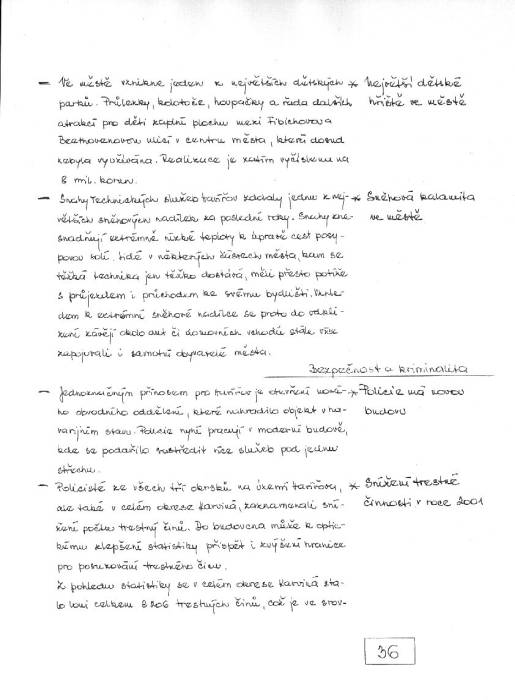 – Ve městě vznikne jeden z největších dětských * Největší dětské
parků. Průlezky, kolotoče, houpačky a řada dalších hřiště ve městě
atrakcí pro děti zaplní plochu mezi Fibichovou a
Beethovenovou ulicí v centru města, která dosud
nebyla využívána. Realizace je zatím vyčíslena na
8 mil. korun.
– Snahy Technických služeb Havířov zdolaly jednu z nej- * Sněhová kalamita
větších sněhových nadílek za poslední roky. Snahy zne- ve městě
snadňují extrémně nízké teploty k úpravě cest posy-
povou solí. Lidé v některých částech města, kam se
těžká technika jen těžko dostává, měli přesto potíže
s průjezdem i průchodem ke svému bydlišti. Vzhle-
dem k extrémní sněhové nadílce se proto do odkli-
zení závějí okolo aut či domovních vchodů stále více
zapojovali i samotní obyvatelé města.
Bezpečnost a kriminalita
– Jednoznačným přínosem pro Havířov je otevření nové- * Policie má novou
ho obvodního oddělení, které nahradilo objekt v ha- budovu
varijním stavu. Policie nyní pracují v moderní budově,
kde se podařilo soustředit více služeb pod jednu
střechu.
– Policisté ze všech tří okrsků na území Havířova, * Snížení trestné
ale také v celém okrese Karviná, zaznamenali sní- činnosti v roce 2001
žení počtu trestný činů. Do budoucna může k optic-
kému zlepšení statistiky přispět i zvýšení hranice
pro posuzování trestného činu.
Z pohledu statistiky se v celém okrese Karviná sta-
lo loni celkem 8 206 trestných činů, což je ve srov-
36